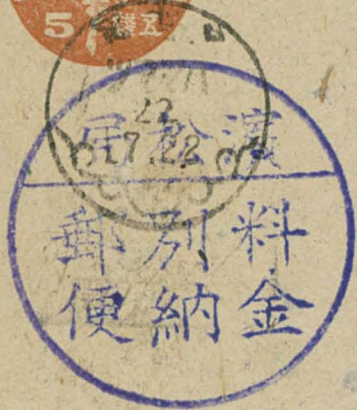 5 五錢
22
7.22
濱松局
料金
別納
郵便